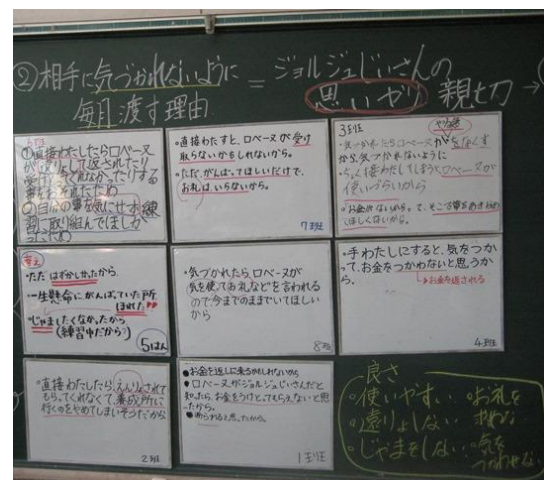 ②相手に気づかれないように
毎月渡す理由
＝ジョルジュじいさんの
思いやり 親切→
6班
①直接わたしたらロベーヌ
が
受け
②自分の事を気にせず練
習に取り組んでほしか
ったため
・直接わたすと、ロベーヌが受け
取らないかもしれないから。
・ただ、がんばってほしいだけで、
お礼はいらないから。
7班
3班
やる気
・気づかれたらロベーヌがをなくす
から気づかれないように
・ちょく接わたしてしまうとロベーヌが
使いづらいから
・お金がないからって、そこで夢をあきらめて
ほしくないから。
考え
・ただはずかしかったから
・一生懸命にがんばっていた所
ほれた
・じゃましたくなかったから
(練習中だから?)
5はん
・気づかれたら、ロベーヌが
気を使てお礼などを言われる
ので今までのままでいてほしい
から
8班
・手わたしにすると、気をつかっ
て、お金をつかわないと思うか
ら。
→お金を返される
4班
・直接わたしたら、えんりょされて
もらってくれなくて、養成所に
行くのをやめてしまいそうだから
2班
●お金を返しに来るかもしれないから
●ロベーヌがジョルジュじいさんだと
知ったら、お金をうけとってもらえないと思っ
たから。
●断られると思ったから。
1班
良さ
・使いやすい
・遠りょしない
・じゃまをしない
・お礼を
・気を
つかわせない